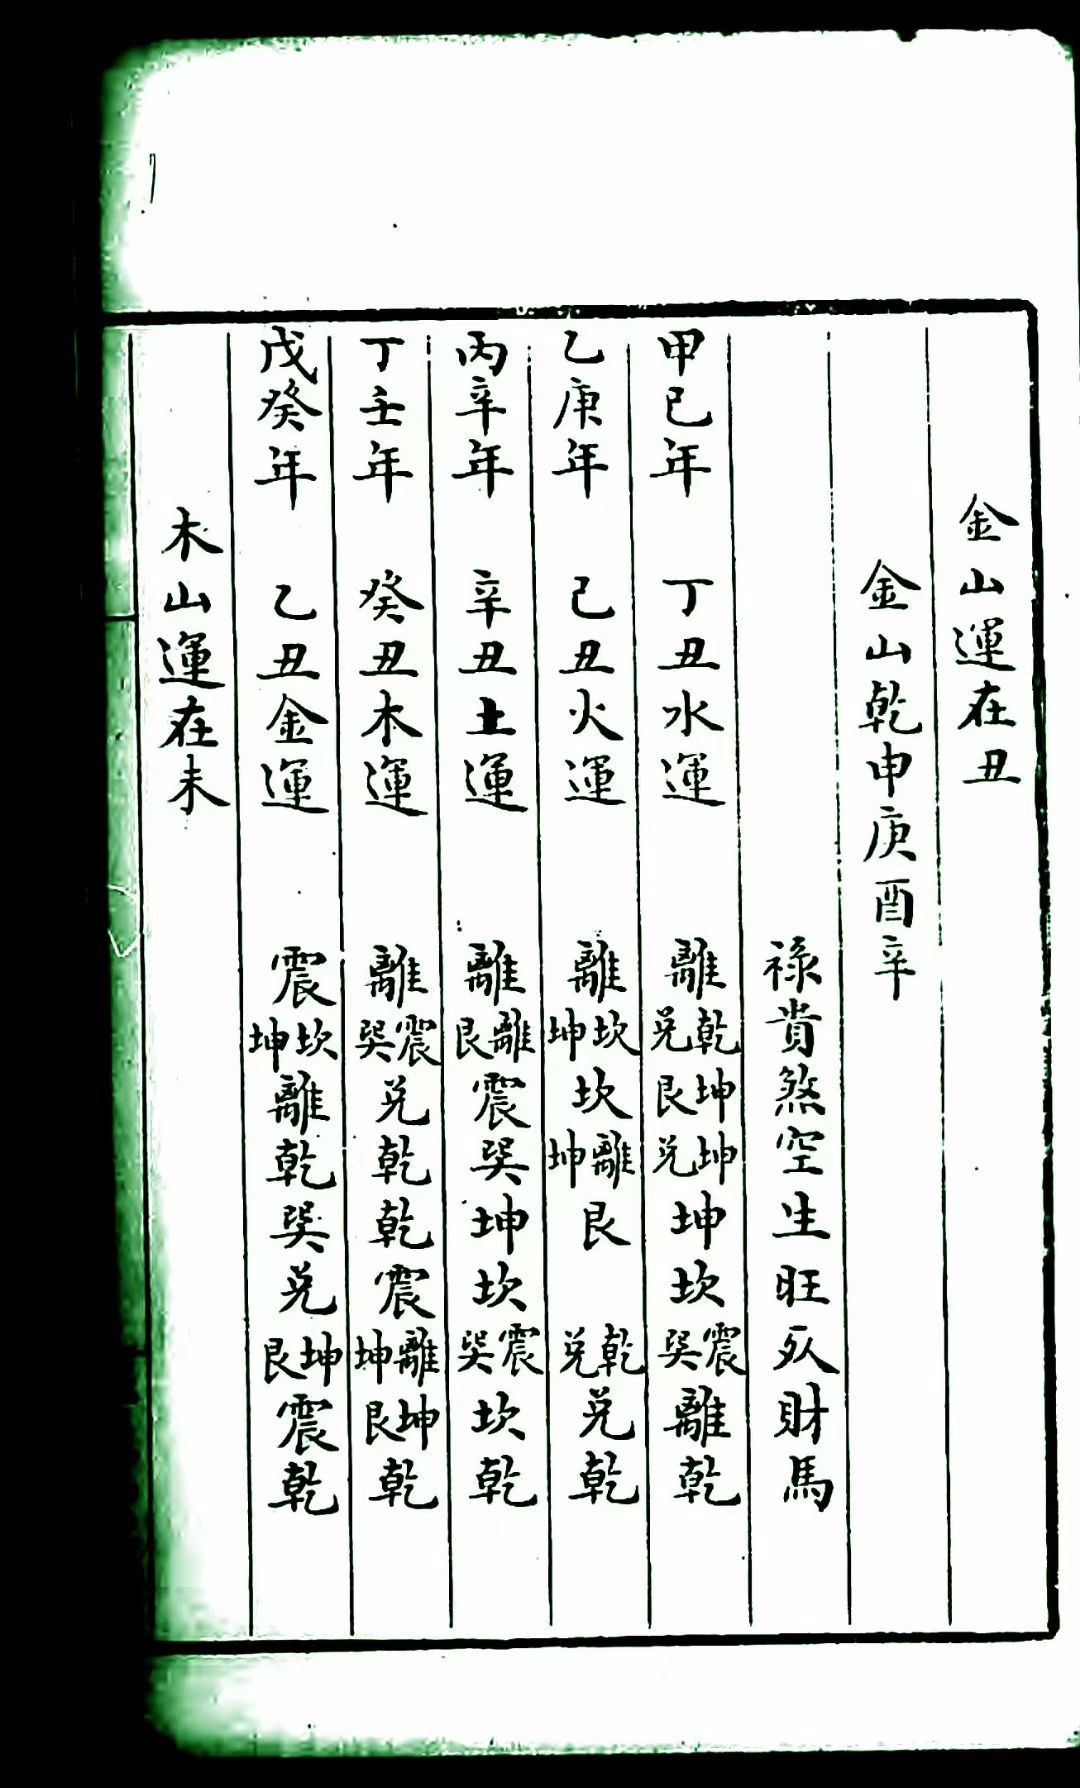 金山運在丑
金山乾申庚酉辛
祿貴煞空生旺处財馬
甲己年 丁丑水運 離乾兌坤艮坤兌坤坎震巽離乾
乙庚年 己丑火運 離坎坤坎離坤艮 乾兌兌乾
丙辛年 辛丑土運 離離艮震巽坤坎震巽坎乾
丁壬年 癸丑木運 離震巽兌乾乾震離坤坤艮乾
戊癸年 乙丑金運 震坎坤離乾巽兌坤艮震乾
木山運在未